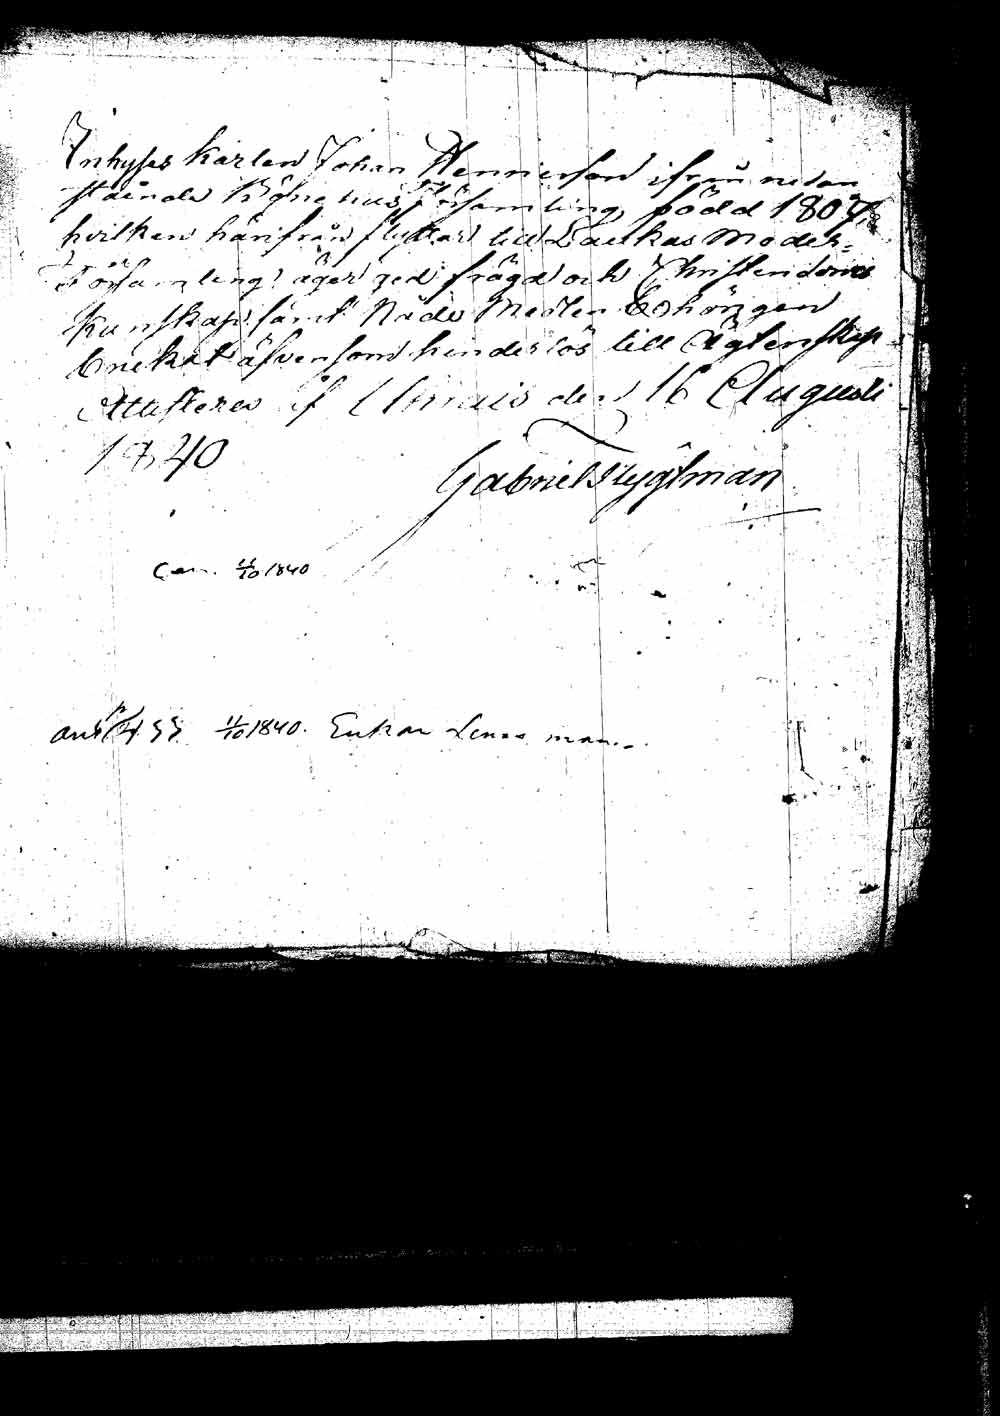 Inhyses karlen Johan Hennersson ifrån nedan
stående Bönehus Församling, född 1807
hvilken härifrån flyttar till Laukas Moder=
Församling; äger god frägd och Christendoms
Kunskap samt Nåde Medlen behörigen
brukat äfvensom hinderlös till Ägtenskap
Attesteras af den 16 Augusti
1840
Gabriel Flygtman
11/10 1840
11/10 1840. Enkan Lenas man